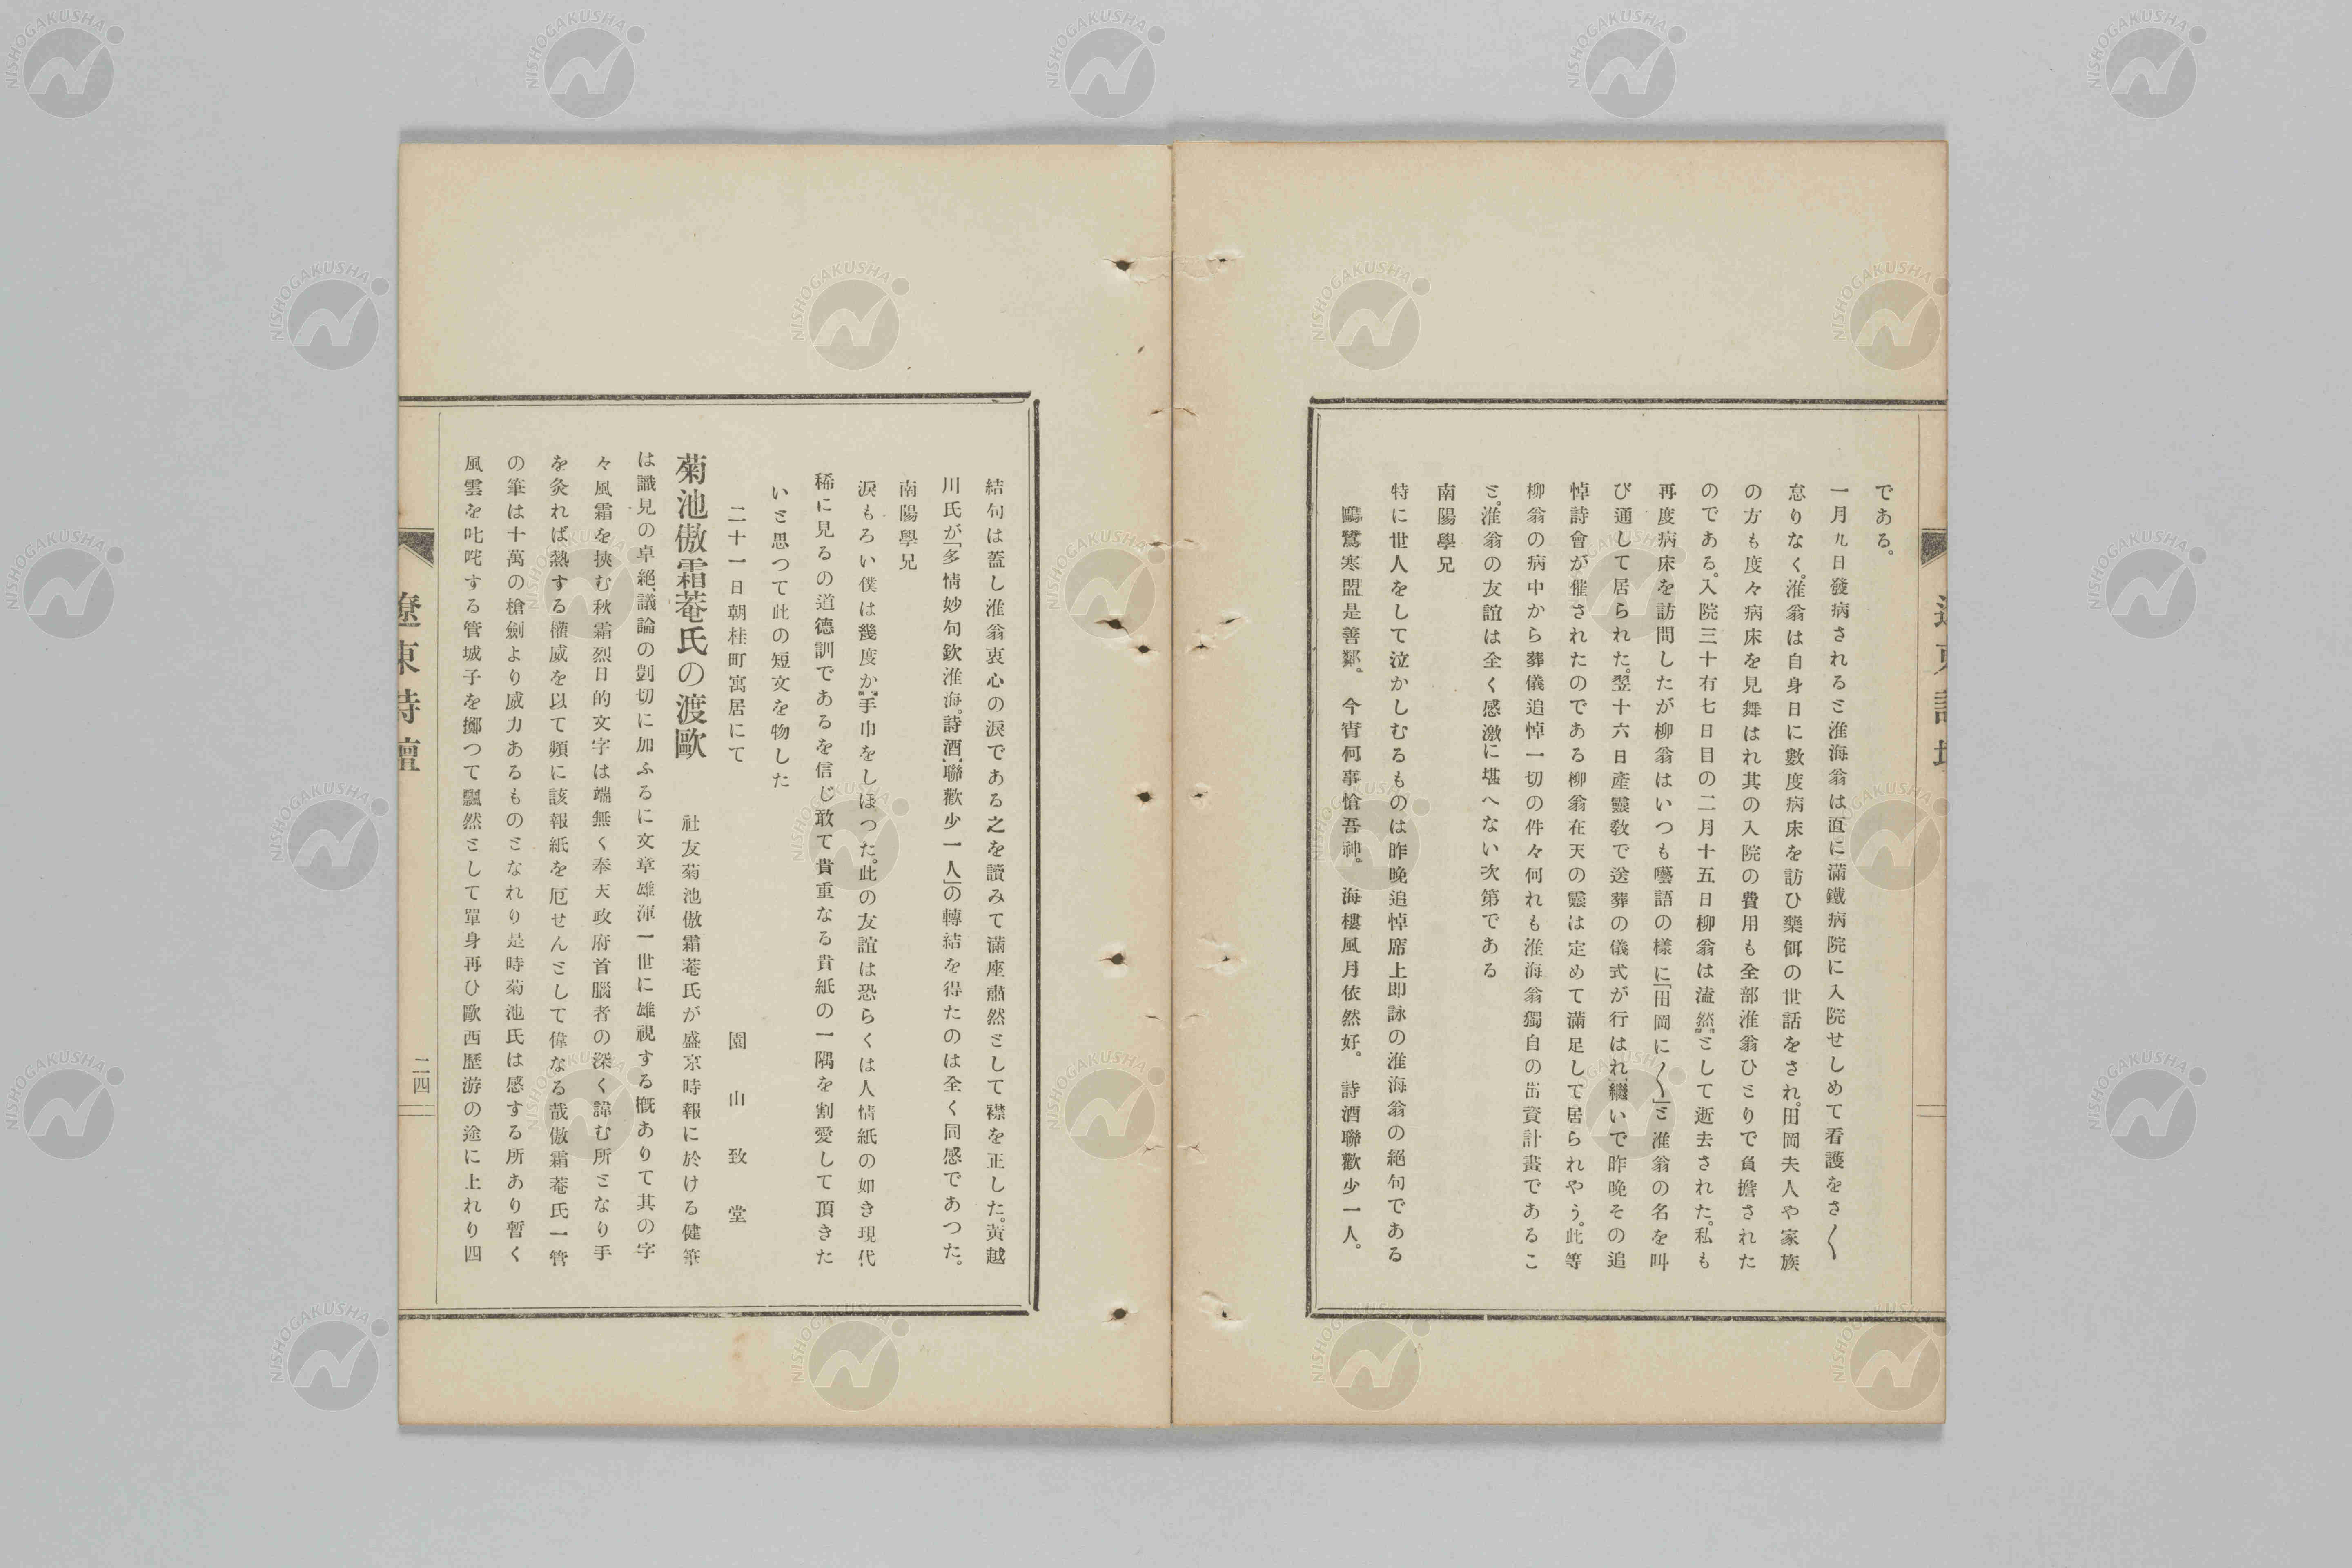 である。
一月九日發病されるミ淮海翁は直に滿鐵病院に入院せしめて看護をさ〱
怠りなく、淮翁は自身日に數度病床を訪ひ藥餌の世話をされ、田岡夫人や家族
の方も度々病床を見舞はれ其の入院の費用も全部淮翁ひミりで負擔された
のである。入院三十有七日目の二月十五日柳翁は溘然ミして逝去された。私も
再度病床を訪問したが柳翁はいつも囈語の樣に「田岡に〱」ミ淮翁の名を叫
び通して居られた。翌十六日産靈敎で送葬の儀式が行はれ、繼いで昨晩その追
悼詩會が催されたのである柳翁在天の靈は定めて滿足して居られやう。此等
柳翁の病中から葬儀追悼一切の件々何れも淮海翁獨自の出資計畫であるこ
ミ。淮翁の友誼は全く感激に堪へない次第である
南陽學兄
特に世人をして泣かしむるものは昨晩追悼席上即詠の淮海翁の絕句である
鷗鷺寒盟是善鄰。 今宵何事愴吾神。 海樓風月依然好。 詩酒聯歡少一人。
遼東詩壇
結句は蓋し淮翁衷心の淚である之を讀みて滿座肅然ミして襟を正した。黃越
川氏が「多情妙句欽淮海。詩酒聯歡少一人」の轉結を得たのは全く同感であつた。
南陽學兄
淚もろい僕は幾度か手巾をしぼつた。此の友誼は恐らくは人情紙の如き現代
稀に見るの道德訓であるを信じ敢て貴重なる貴紙の一隅を割愛して頂きた
いミ思つて此の短文を物した
二十一日朝桂町寓居にて 園山致堂
菊池傲霜菴氏の渡歐 社友菊池傲霜菴氏が盛京時報に於ける健筆
は識見の卓絕、議論の剴切に加ふるに文章雄渾一世に雄視する槪ありて其の字
々風霜を挾む秋霜烈日的文字は端無く奉天政府首腦者の深く諱む所ミなり手
を灸れば熱する權威を以て頻に該報紙を厄せんミして偉なる哉傲霜菴氏一管
の筆は十萬の槍劍より威力あるものミなれり是時菊池氏は感する所あり暫く
風雲を叱咤する管城子を擲つて飄然ミして單身再ひ歐西歷游の途に上れり四
遼東詩壇
二四